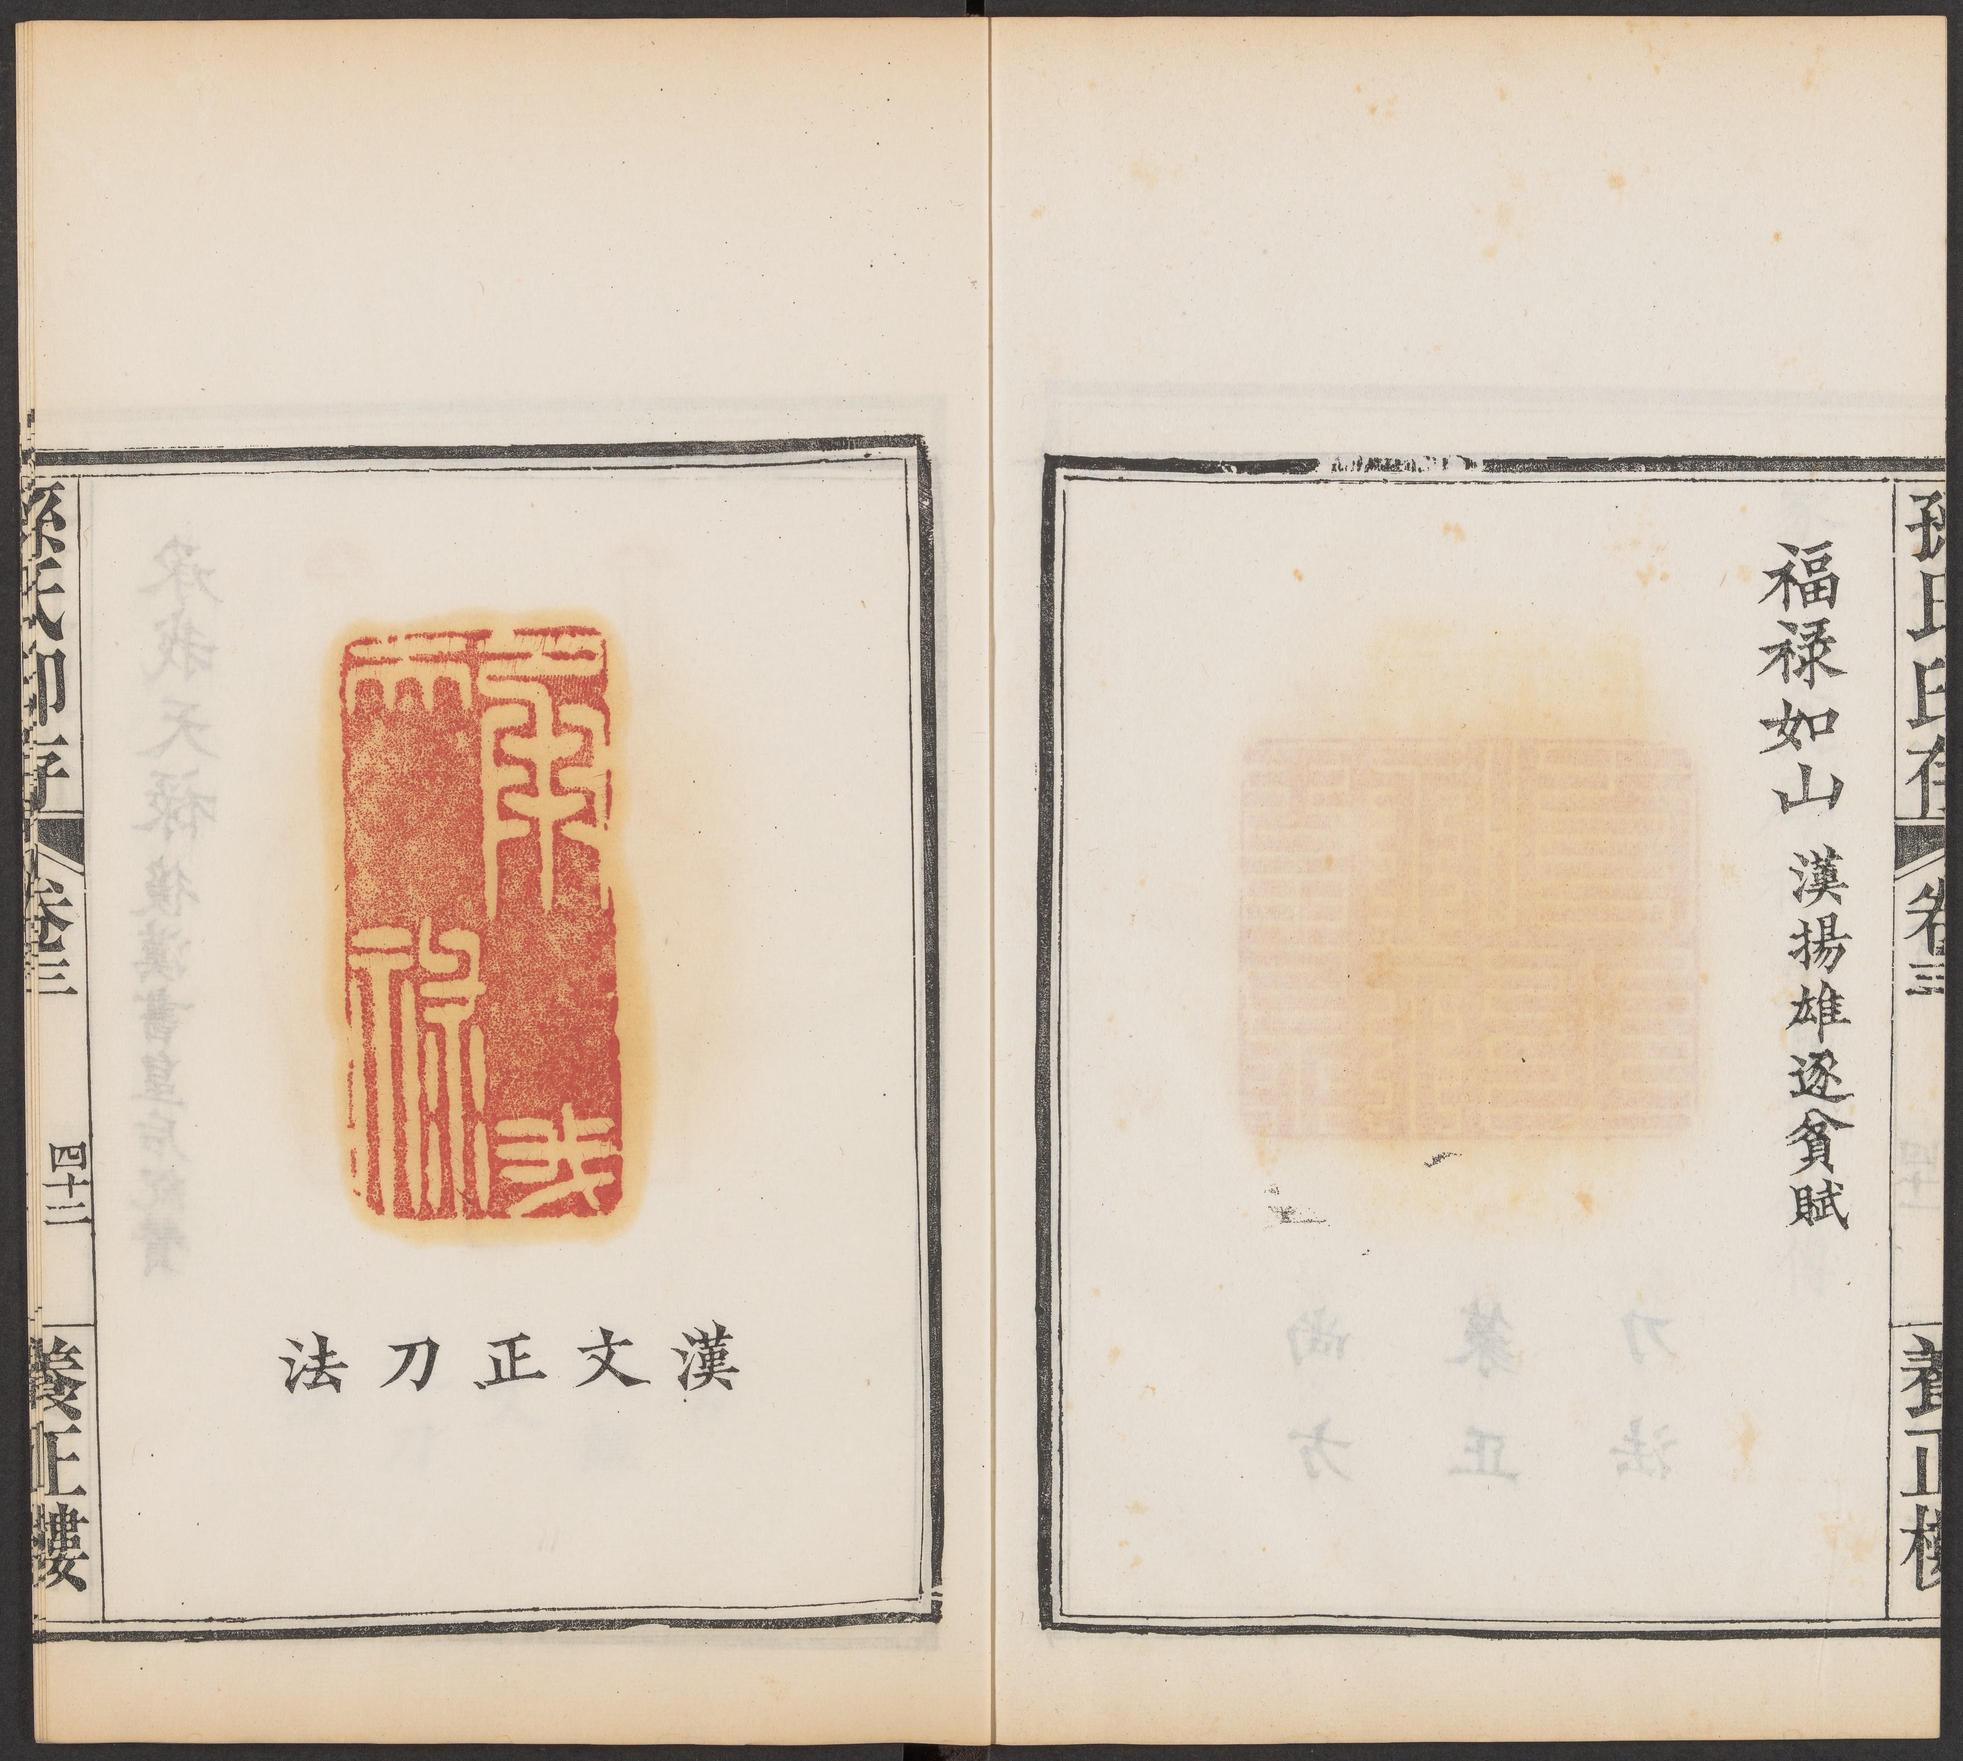 孫氏印存
卷三
養正樓
福祿如山 漢揚雄逐貧賦
承我
天祿
漢文正刀法
孫氏印存
卷三
四十二
養正樓